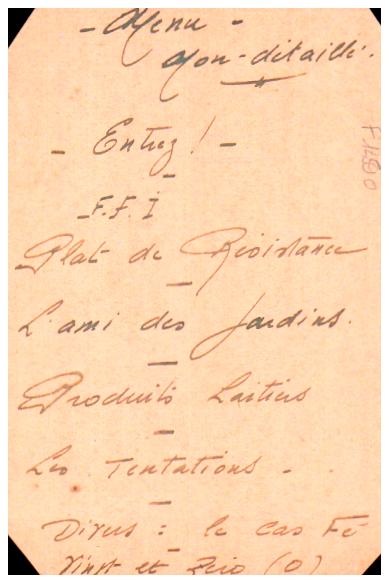 - Menu -
Non-détaillé.
- Entrez ! -
- F.F.I
Plat de Résistance
L'ami des Jardins.
Produits Laitiers
Les Tentations -
Divers : le cas Fé
Vingt et Zéro (0)